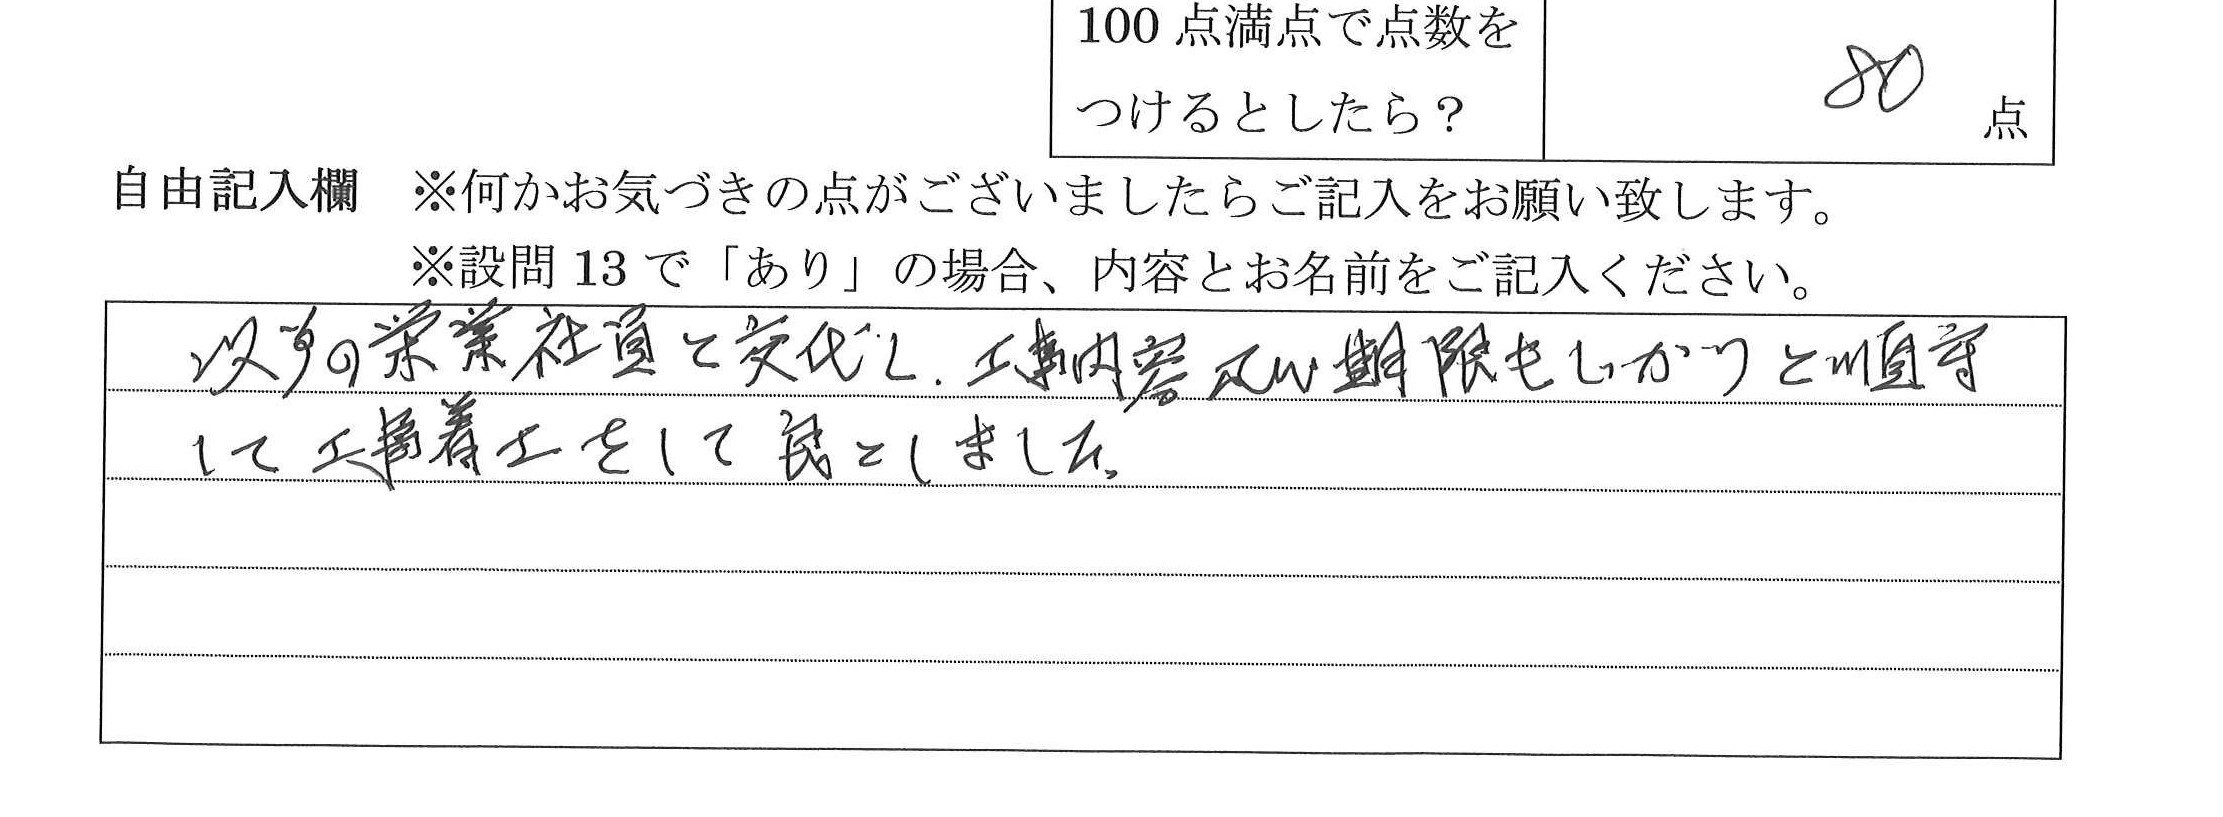 100点満点で点数を
つけるとしたら?
80 点
自由記入欄 ※何かお気づきの点がございましたらご記入をお願い致します。
※設問13で「あり」の場合、内容とお名前をご記入ください。
以前の営業社員と交代し、工事内容及び期限もしっかりと順守
して工事着工をして しました。